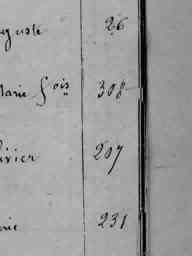 uguste 26
Marie f.ois 308
livier 207
rie 231